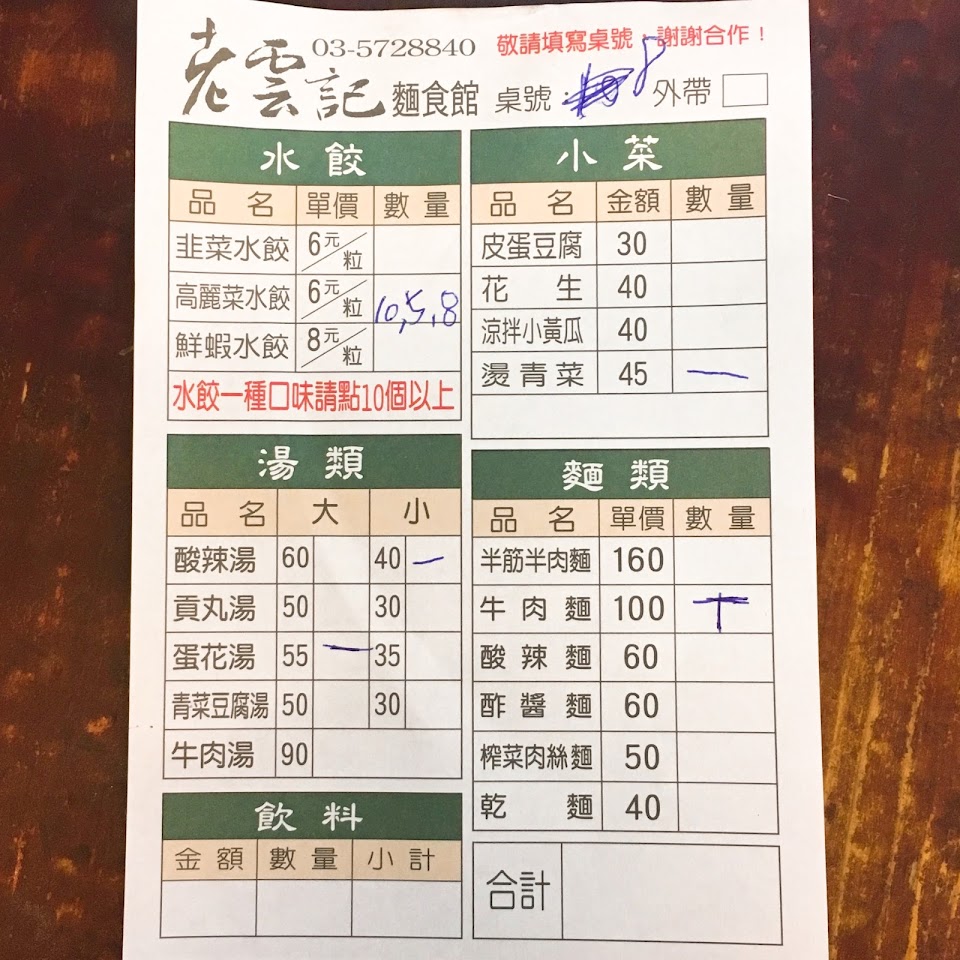 老雲記 麵食館 03-5728840
敬請填寫桌號，謝謝合作！
桌號： 8 外帶
水餃
品名 單價 數量
韭菜水餃 6元/粒
高麗菜水餃 6元/粒 10,5,8
鮮蝦水餃 8元/粒
水餃一種口味請點10個以上
小菜
品名 金額 數量
皮蛋豆腐 30
花生 40
涼拌小黃瓜 40
燙青菜 45 一
湯類
品名 大 小
酸辣湯 60 40 一
貢丸湯 50 30
蛋花湯 55 一 35
青菜豆腐湯 50 30
牛肉湯 90
麵類
品名 單價 數量
半筋半肉麵 160
牛肉麵 100 丅
酸辣麵 60
酢醬麵 60
榨菜肉絲麵 50
乾麵 40
飲料
金額 數量 小計
合計